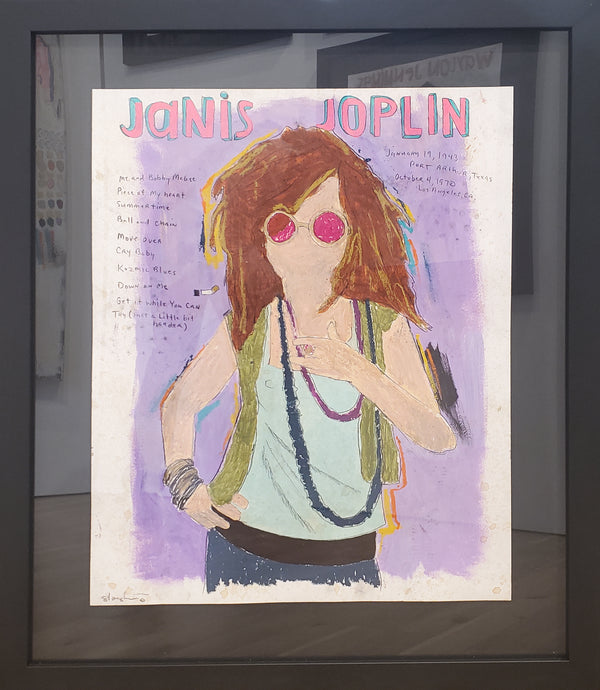 JANIS JOPLIN
Me and Bobby McGee
Piece of My heart
Summertime
Ball and chain
Move over
Cry Baby
Kozmic Blues
Down on Me
Get it while You CAN
Try (Just a Little bit
harder)
January 19, 1943
PORT ARthur, Texas
October 4, 1970
Los Angeles, Ca.
WAYLON JENNINGS